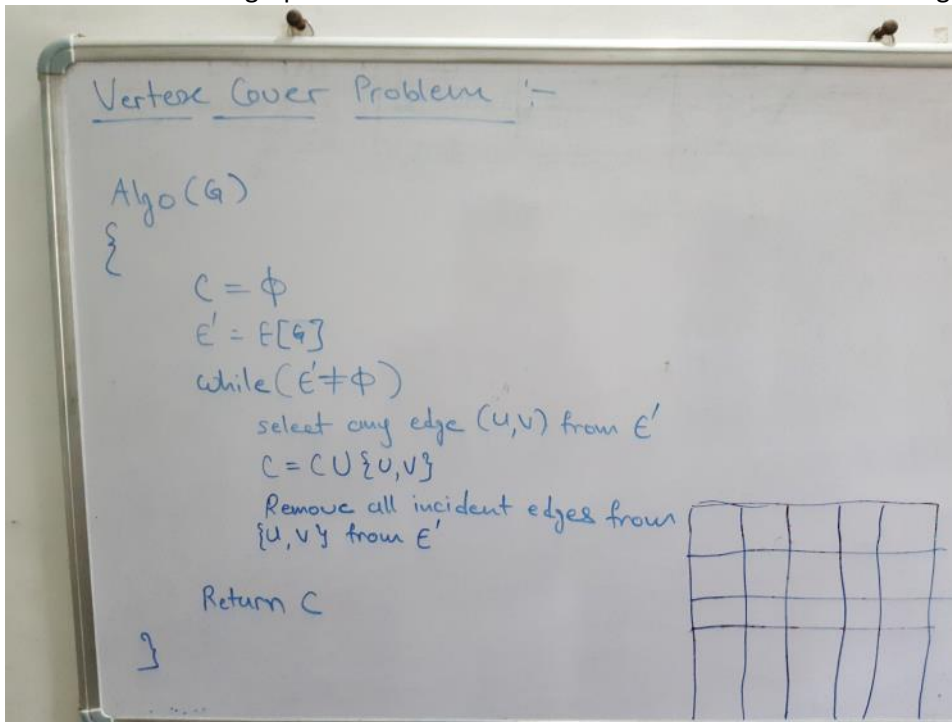 Vertex Cover Problem :-
Algo(G)
{
C = ϕ
E' = E[G]
while(E'≠ϕ)
select any edge (u,v) from E'
C = C∪{u,v}
Remove all incident edges from
{u,v} from E'
Return C
}